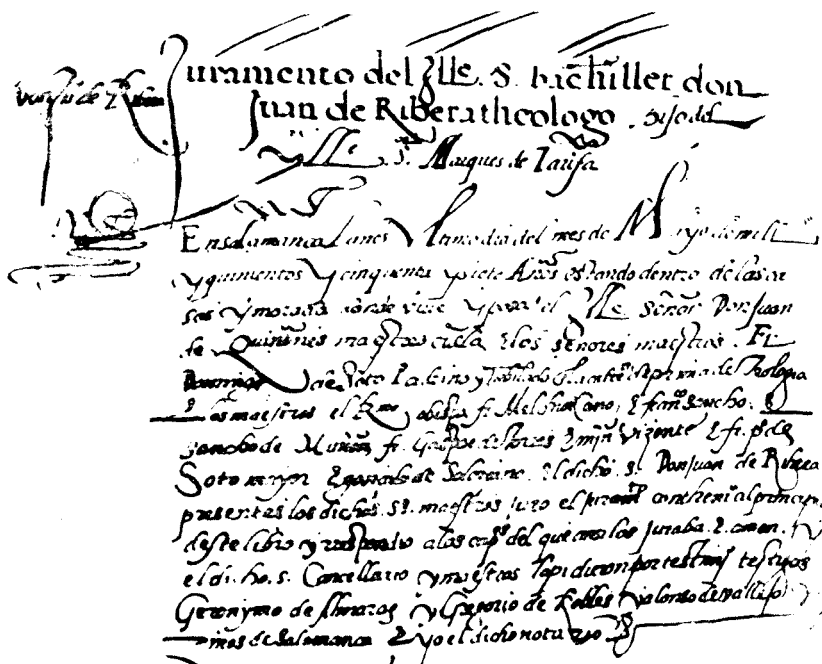 Juramento del Ille. S. bachiller don
Juan de Ribera theologo. hijo del
Ille. S. Marques de Tarifa
En salamanca Lunes Vltimo dia del mes de Mayo de mill
y quinientos y cinquenta y siete Años estando dentro de las ca
sas y morada donde vive y posa el Ille Señor Don Juan
de Quiñones maestrescuela E los señores maestros. Fr
Domingo de Soto de prima de Theologia
E los maestros el Rmo obispo fr Melchior Cano, E franco sancho. E
sancho de Muñon fr Gaspar de torres E min Vizente E fr. po de
Sotomayor E gallo de Salamanca. El dicho S. Don Juan de Ribera
presentes los dichos. SS. maestros juro el juramto contheni al principio
deste libro y respondio a los capos del que ansi los juraba. E amen. y
el dicho. s. Cancellario y maestros lo pidieron por testimo testigos
Geronymo de Almaraz y Gregorio de Robles y alonso de vallejo
vnos de salamanca E yo el dicho notario